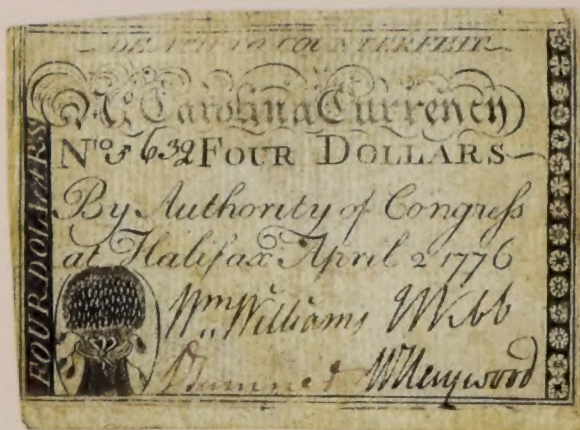 DEATH TO COUNTERFEIT
N. Carolina Currency
No 5632 FOUR DOLLARS
By Authority of Congress
at Halifax April 2 1776
FOUR DOLLARS
Wm Williams J Webb
W Haywood